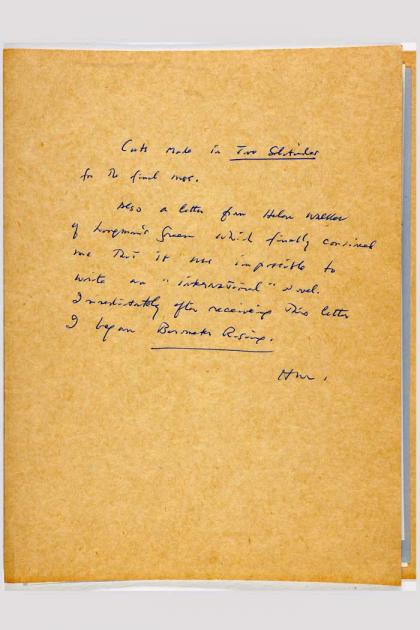 Cuts made in Two Solitudes
for the final mss.
Also a letter from Helen Walker
of Longman's Green which finally convinced
me that it was impossible to
write an "international" novel.
Immediately after receiving this letter
I began Barometer Rising.
HM.